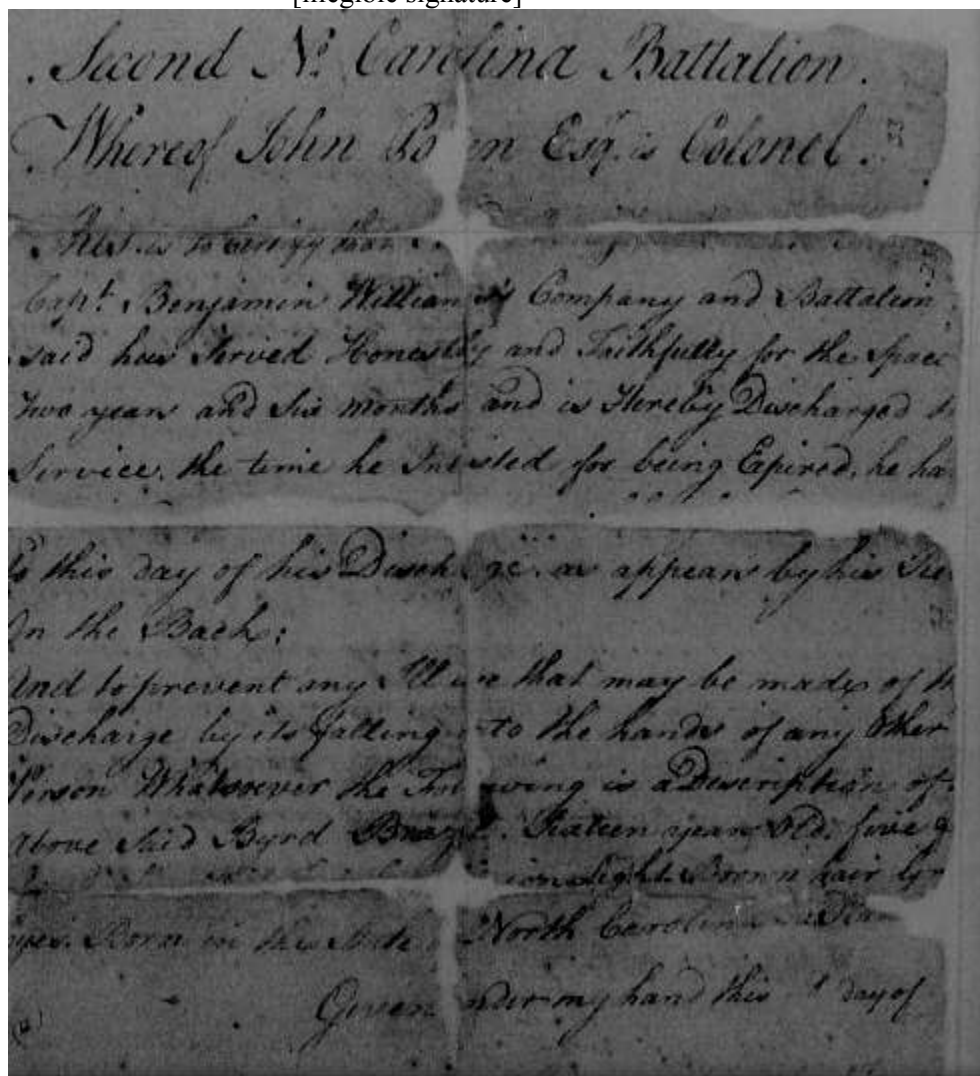 [illegible signature]
Second No. Carolina Battalion.
Whereof John Pa n Esqr. is Colonel.
This is to Certify that
Capt. Benjamin William s Company and Battalion
said has Served Honestly and Faithfully for the Space
Two years and Six months and is Hereby Discharged
Service, the time he In isted for being Expired, he ha
to this day of his Disch ge. as appears by his Re
On the Back:
And to prevent any Ill u e that may be made of th
Discharge by its falling to the hands of any Other
Person Whatsoever the Fo owing is a Description of
above Said Byrd Braz l. Sixteen years Old, five
ion Light Brown hair
eyes. Born in this State North Carolina
Given nder my hand this day of